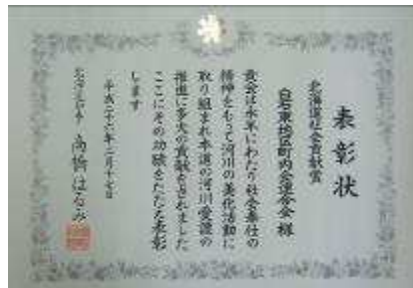 表彰状
北海道社会貢献賞
白石東地区町内会連合会 様
貴会は永年にわたり社会奉仕の
精神をもって河川の美化活動に
取り組まれ本道の河川愛護の
推進に多大の貢献をされました
ここにその功績をたたえ表彰
します
平成二十六年二月十七日
北海道知事 高橋はるみ